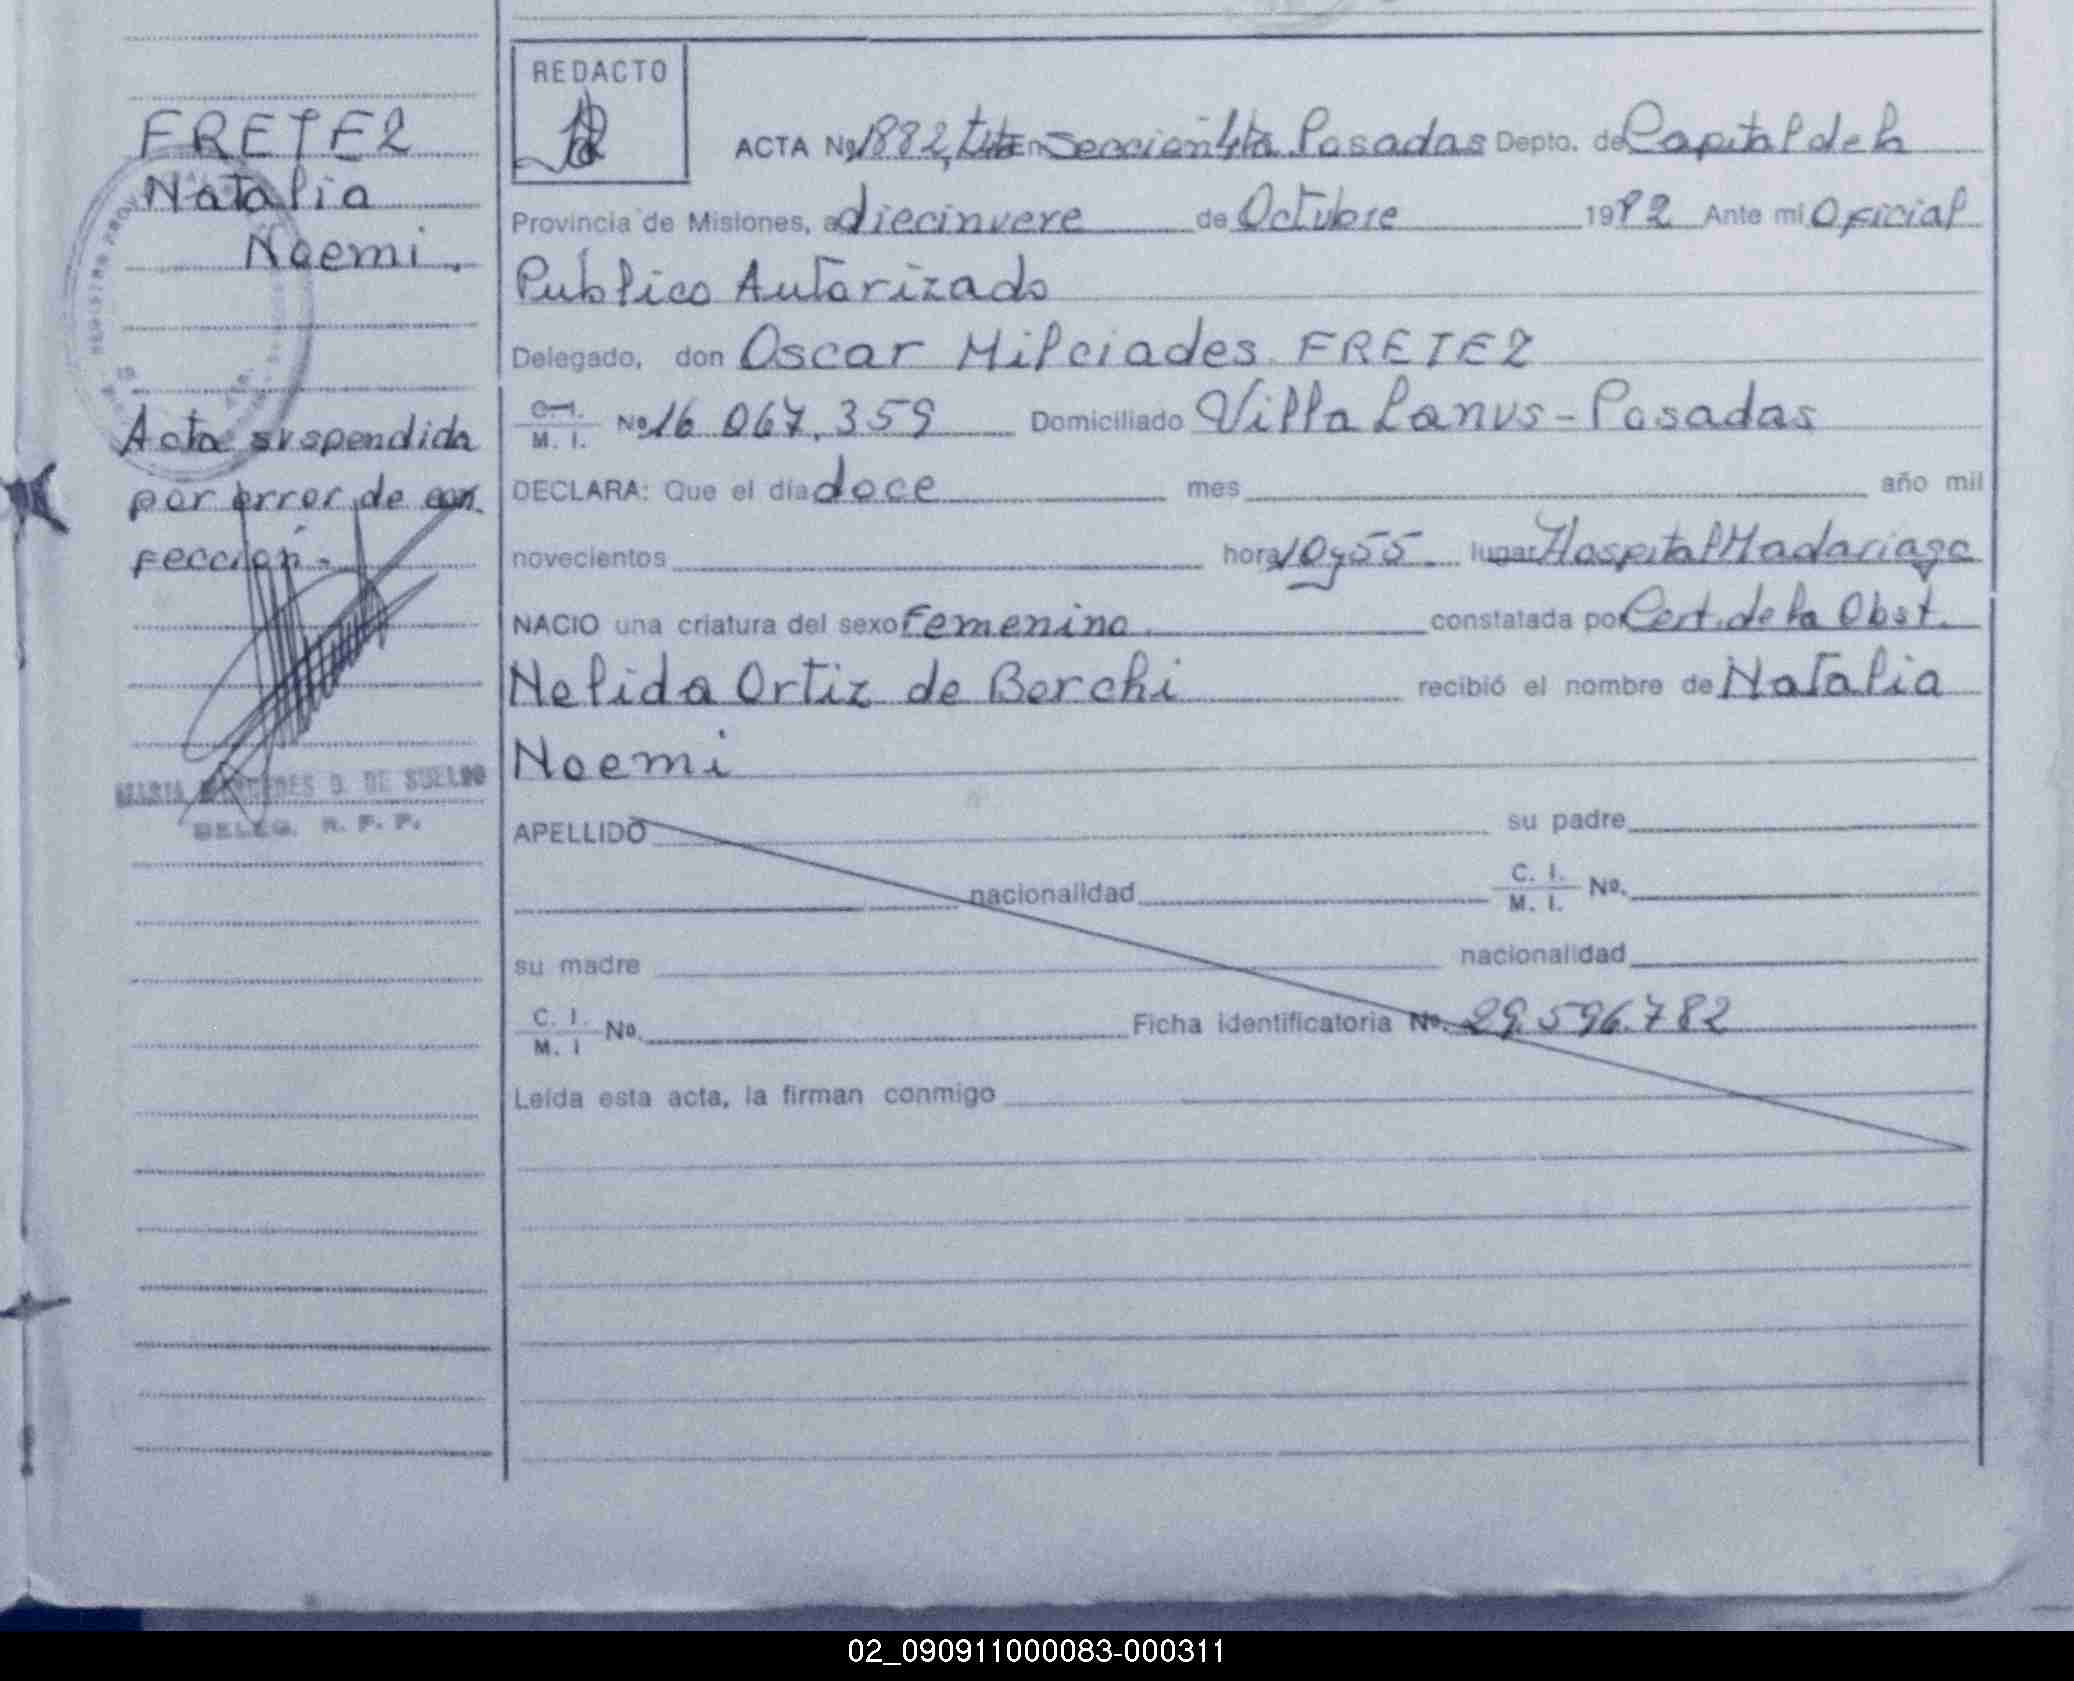 REDACTO
FRETEZ
Natalia
Noemi.
Acta suspendida
por error de con
fección.-
MARIA MERCEDES D. DE SUELDO
DELEG. R. P. P.
ACTA Nº 1882, en Sección 4ta Posadas Depto. de Capital de la
Provincia de Misiones, a diecinueve de Octubre 1982 Ante mi Oficial
Publico Autorizado
Delegado, don Oscar Milciades FRETEZ
C. I. M. I. Nº 16.067.359 Domiciliado Villa Lanus - Posadas
DECLARA: Que el día doce mes año mil
novecientos hora 10 y 55 lugar Hospital Madariaga
NACIO una criatura del sexo Femenino constatada por Cert. de la Obst.
Nelida Ortiz de Borchi recibió el nombre de Natalia
Noemi
APELLIDO su padre
nacionalidad C. I. M. I. Nº.
su madre nacionalidad
C. I. M. I Nº. Ficha identificatoria Nº. 29.596.782
Leída esta acta, la firman conmigo
02_090911000083-000311